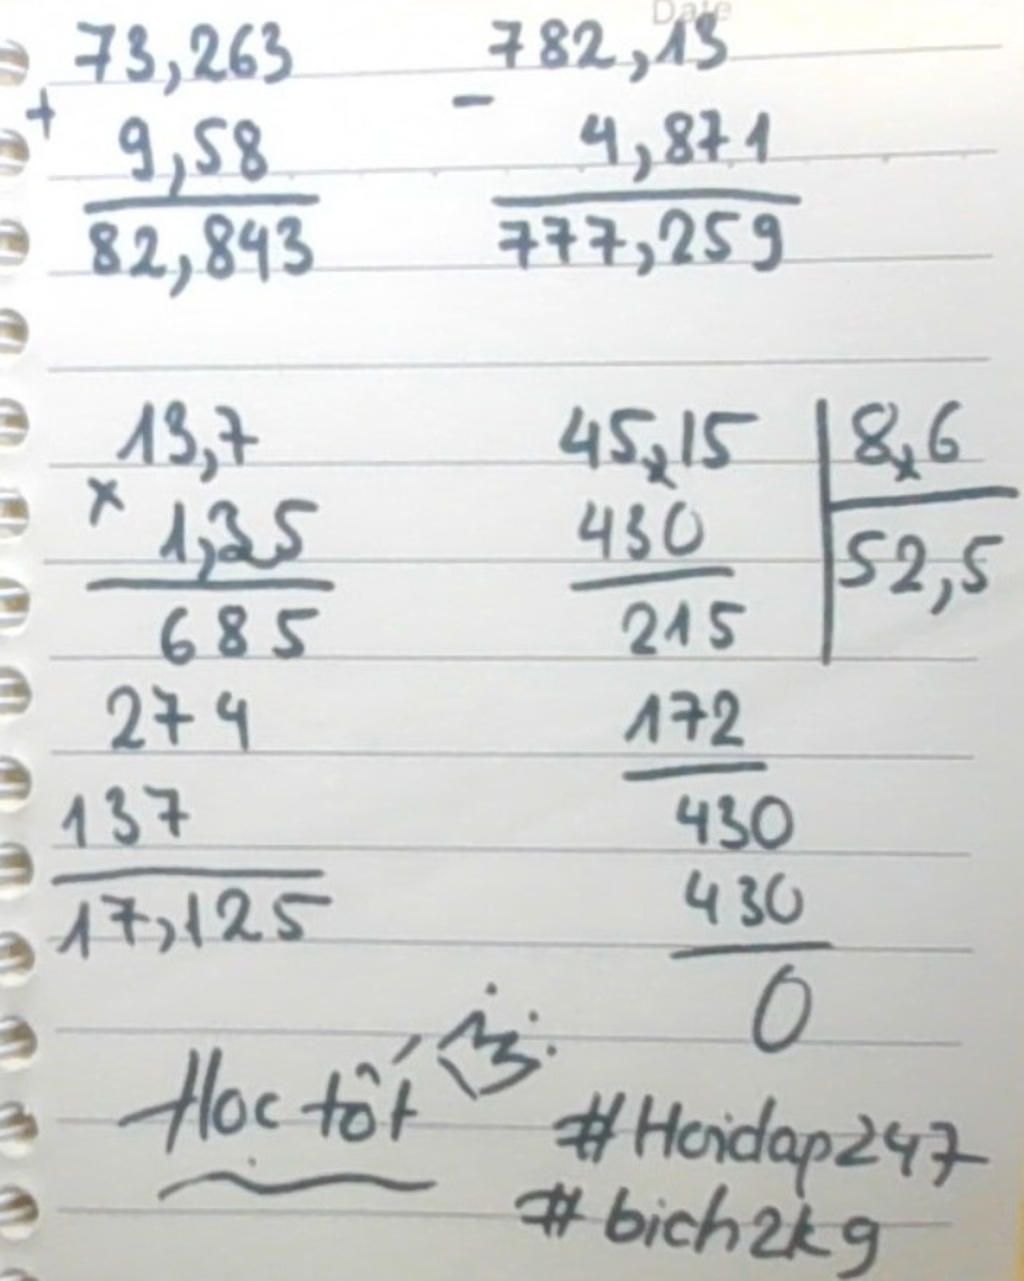 Date
73,263
+
9,58
82,843
782,13
-
4,871
777,259
13,7
x
1,35
685
274
137
17,125
45,15 8,6
430 52,5
215
172
430
430
0
Học tốt
#Hoidap247
#bich2kg